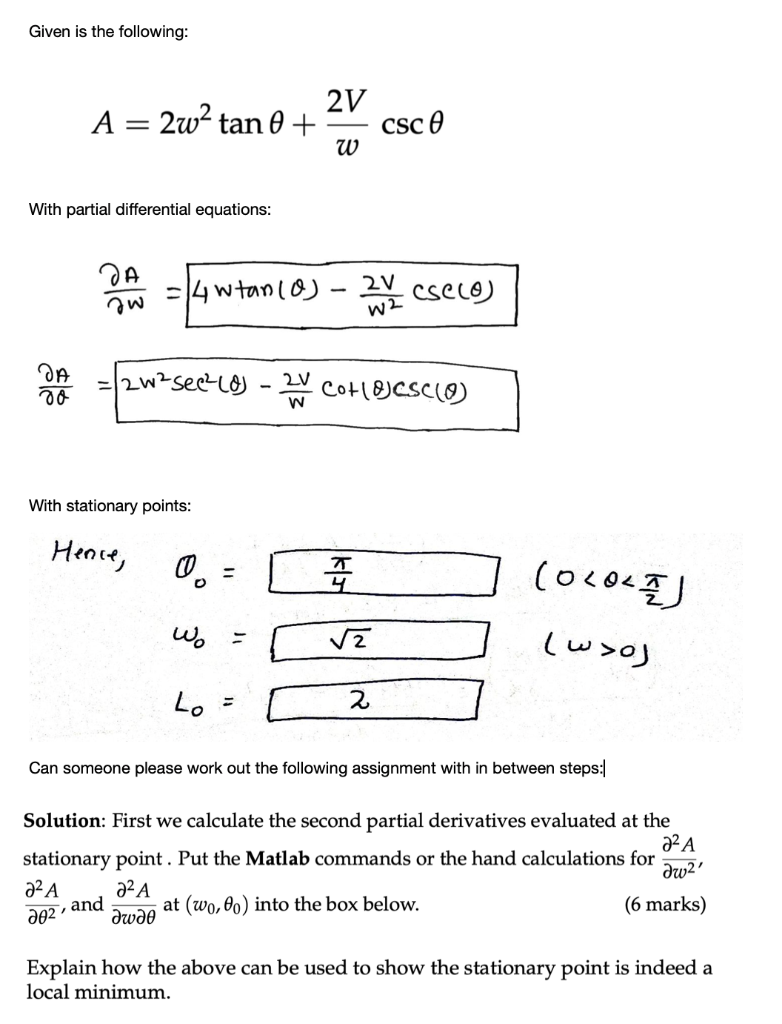 Given is the following:
A = 2w² tan θ + 2V/w csc θ
With partial differential equations:
∂A/∂w = 4wtan(θ) - 2V/w² csc(θ)
∂A/∂θ = 2w²sec²(θ) - 2V/w cot(θ)csc(θ)
With stationary points:
Hence, θ₀ = π/4 (0<θ<π/2)
w₀ = √2 (w>0)
L₀ = 2
Can someone please work out the following assignment with in between steps:
Solution: First we calculate the second partial derivatives evaluated at the
stationary point . Put the Matlab commands or the hand calculations for ∂²A/∂w²,
∂²A/∂θ², and ∂²A/∂w∂θ at (w₀, θ₀) into the box below. (6 marks)
Explain how the above can be used to show the stationary point is indeed a
local minimum.